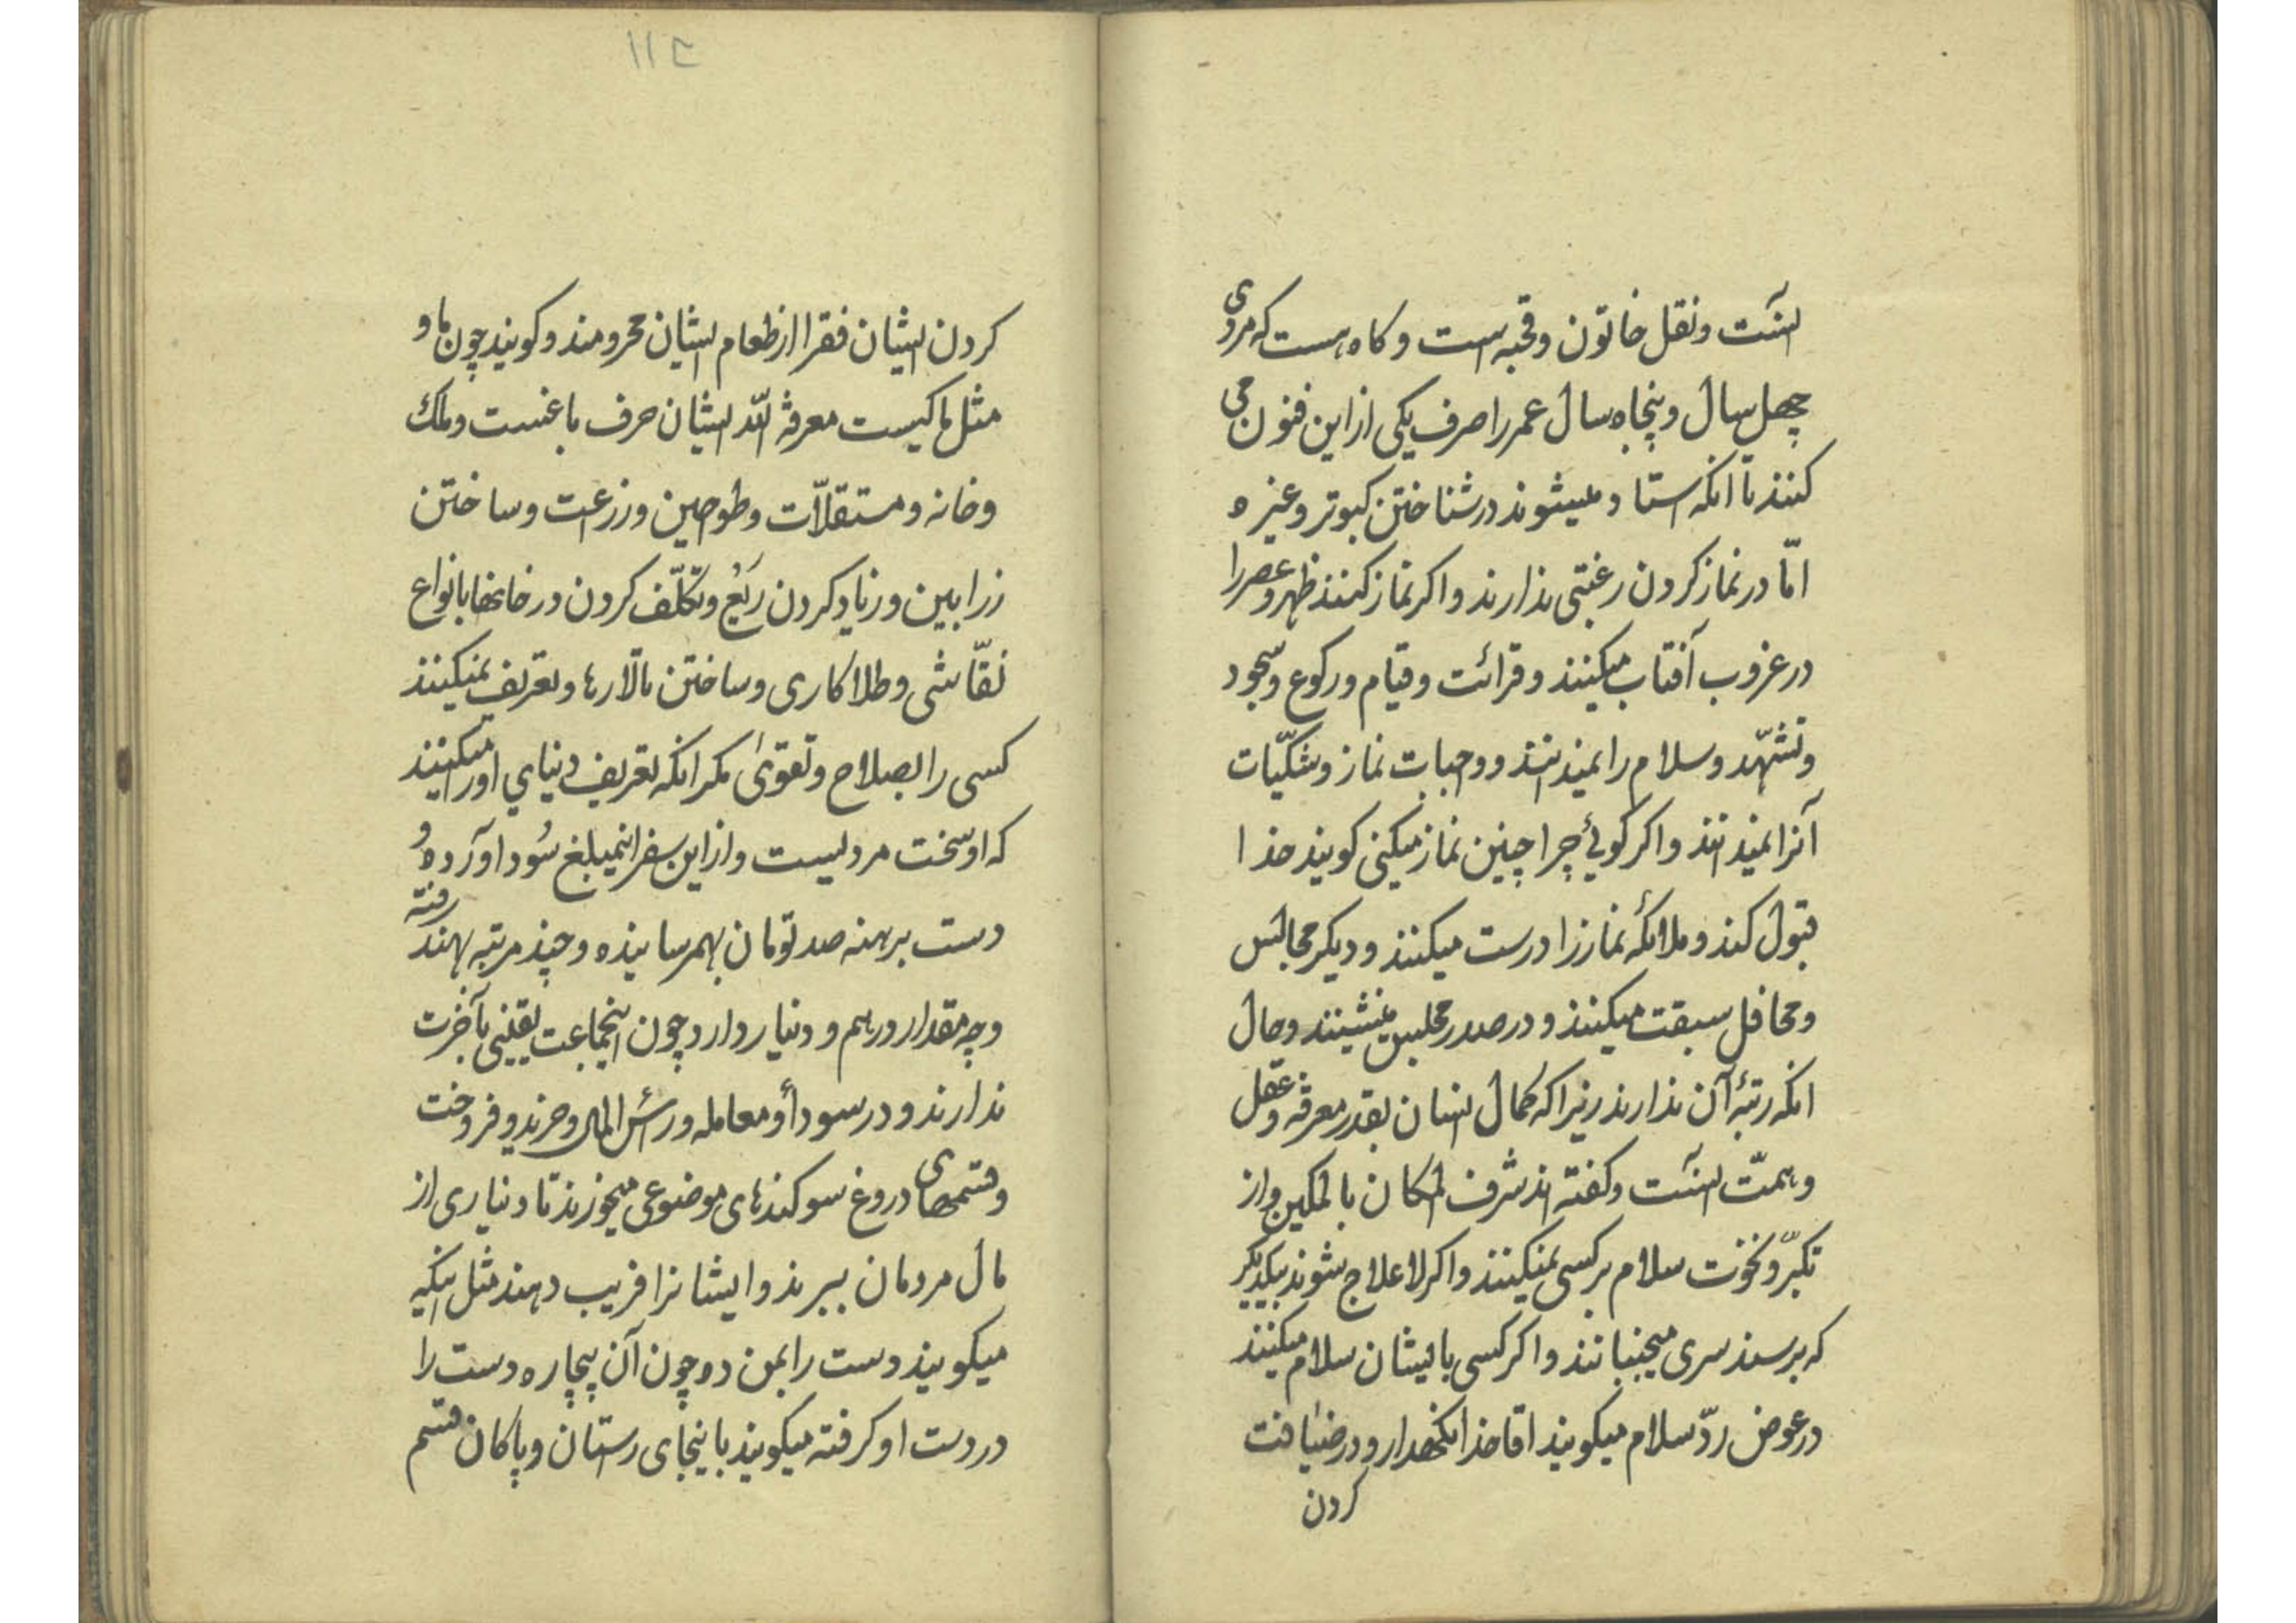 انست ونقل خاتون وقحبه است وکاه هست که مردی
چهل سال وپنجاه سال عمر را صرف یکی از این فنون می
کنند تا انکه استاد میشوند در شناختن کبوتر وغیره
امّا در نماز کردن رغبتی ندارند واکر نماز کنند ظهر وعصر را
در غروب آفتاب میکنند وقرائت وقیام ورکوع وسجود
وتشهّد وسلام را نمیدانند وواجبات نماز وشکیّات
آنرا نمیدانند واکر کوئی چرا چنین نماز میکنی کویند خدا
قبول کند وملائکه نماز را درست میکنند ودیکر مجالس
ومحافل سبقت میکنند ودر صدر مجلس مینشینند وحال
انکه رتبهٔ آن ندارند زیرا که کمال انسان بقدر معرفة وعقل
وهمّت انست وکفته اند شرف المکان بالمکین واز
تکبّر ونخوت سلام بر کسی نمیکنند واکر لاعلاج شوند بیکدیکر
که برسند سری میجنبانند واکر کسی بایشان سلام میکنند
در عوض ردّ سلام میکویند اقا خدا نکهدار ودر ضیافت
کردن
۱۱۲
کردن ایشان فقرا از طعام ایشان محرومند وکویند چون ما و
مثل ما کیست معرفة الله ایشان حرف باغست وملک
وخانه ومستقلّات وطواحین وزرعت وساختن
زرابین وزیاد کردن رَیْع وتکلّف کردن در خانها بانواع
نقّاشی وطلاکاری وساختن تالارها وتعریف نمیکنند
کسی را بصلاح وتقوی مکر انکه تعریف دنیای او را میکنند
که او سخت مردیست واز این سفر اینمبلغ سُود آورده و
دست برهنه صد تومان بهمرسانیده وچند مرتبه بهند رفته
وچه مقدار درهم ودینار دارد چون اینجماعت یقینی بآخرت
ندارند ودر سودا ومعامله ورأس المال وخرید وفروخت
وقسمهای دروغ سوکندهای موضوعی میخورند تا دیناری از
مال مردمان ببرند وایشانرا فریب دهند مثل اینکه
میکویند دست را بمن ده چون آن بیچاره دست را
در دست او کرفته میکویند باینجای راستان وپاکان قسم